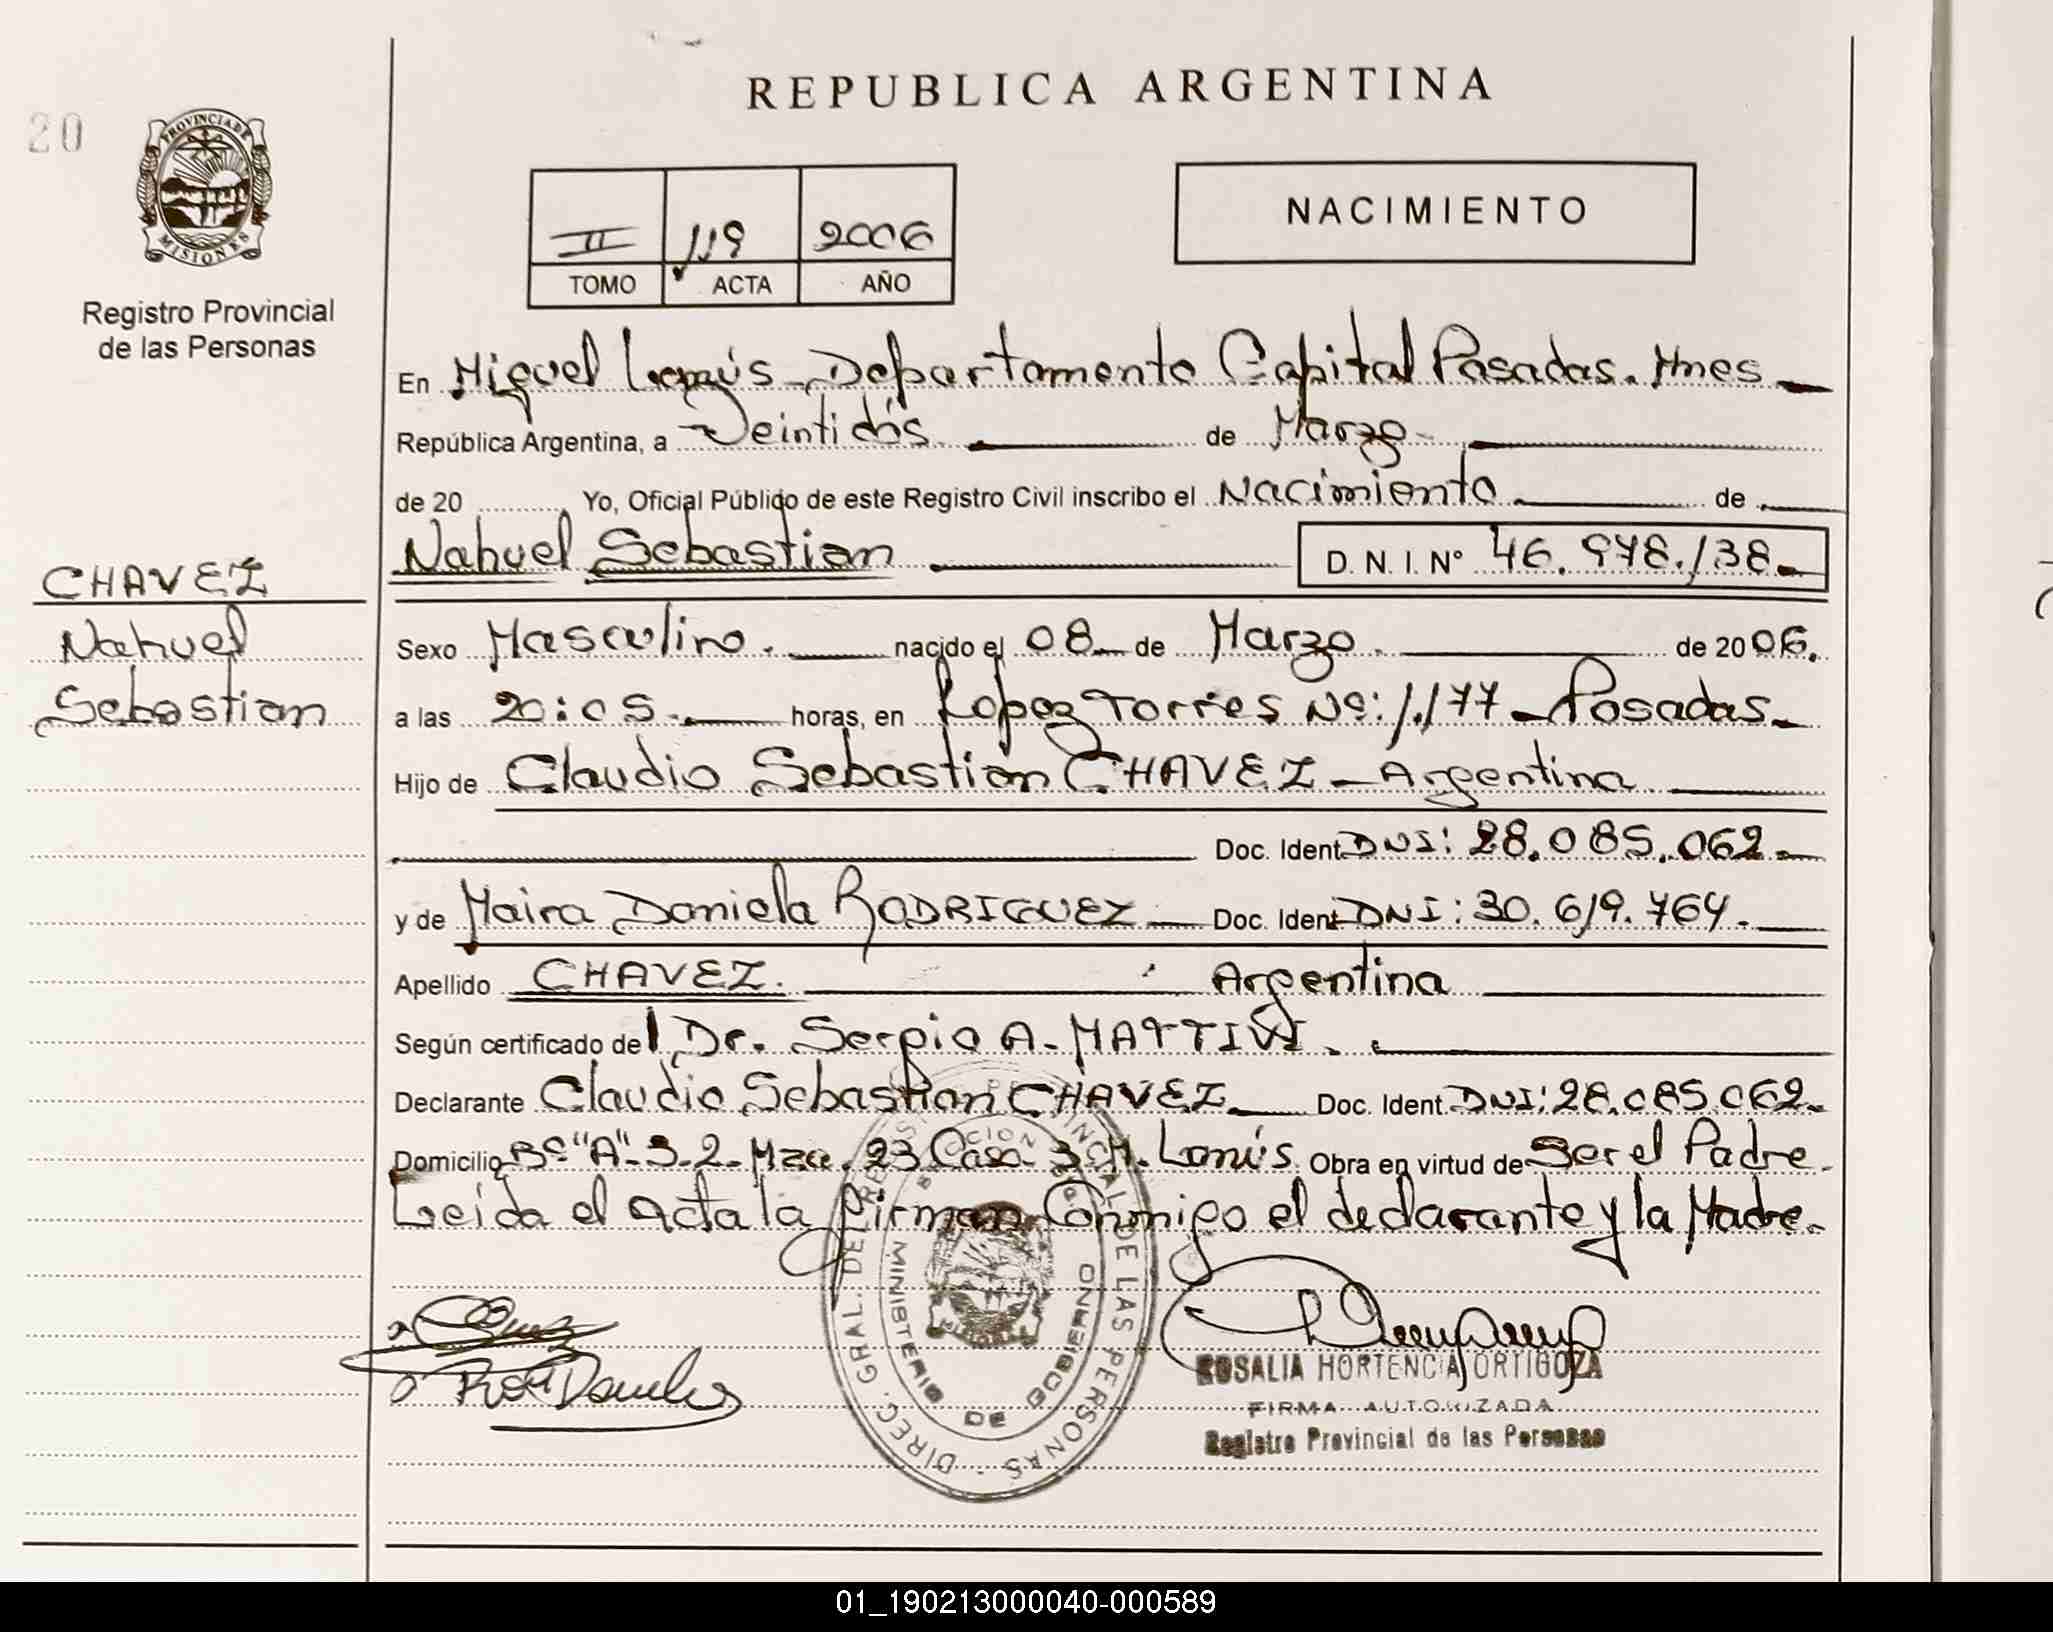 REPUBLICA ARGENTINA
20
PROVINCIA DE MISIONES
Registro Provincial
de las Personas
II 119 2006
TOMO ACTA AÑO
NACIMIENTO
En Miguel Lanús - Departamento Capital Posadas. Mnes
República Argentina, a Veintidós de Marzo
de 20 Yo, Oficial Público de este Registro Civil inscribo el Nacimiento de
Nahuel Sebastian D. N. I. N° 46.978.138
CHAVEZ
Nahuel
Sebastian
Sexo Masculino. nacido el 08 de Marzo. de 2006.
a las 20:05. horas, en Lopez Torres No: 1.177 - Posadas
Hijo de Claudio Sebastian CHAVEZ - Argentina
Doc. Ident. DNI: 28.085.062
y de Maira Daniela RODRIGUEZ Doc. Ident. DNI: 30.619.764.
Apellido CHAVEZ. Argentina
Según certificado del Dr. Sergio A.
Declarante Claudio Sebastian CHAVEZ Doc. Ident. DNI: 28.085.062.
Domicilio Bº "A" - 3-2 - Mza. 23 Casa 3 M. Lanús. Obra en virtud de Ser el Padre.
Leida el acta la firman Conmigo el declarante y la Madre.
DIREC. GRAL. DE REGISTRO PROVINCIAL DE LAS PERSONAS
MINISTERIO DE GOBIERNO
ROSALIA HORTENCIA ORTIGOZA
FIRMA AUTORIZADA
Registro Provincial de las Personas
01_190213000040-000589